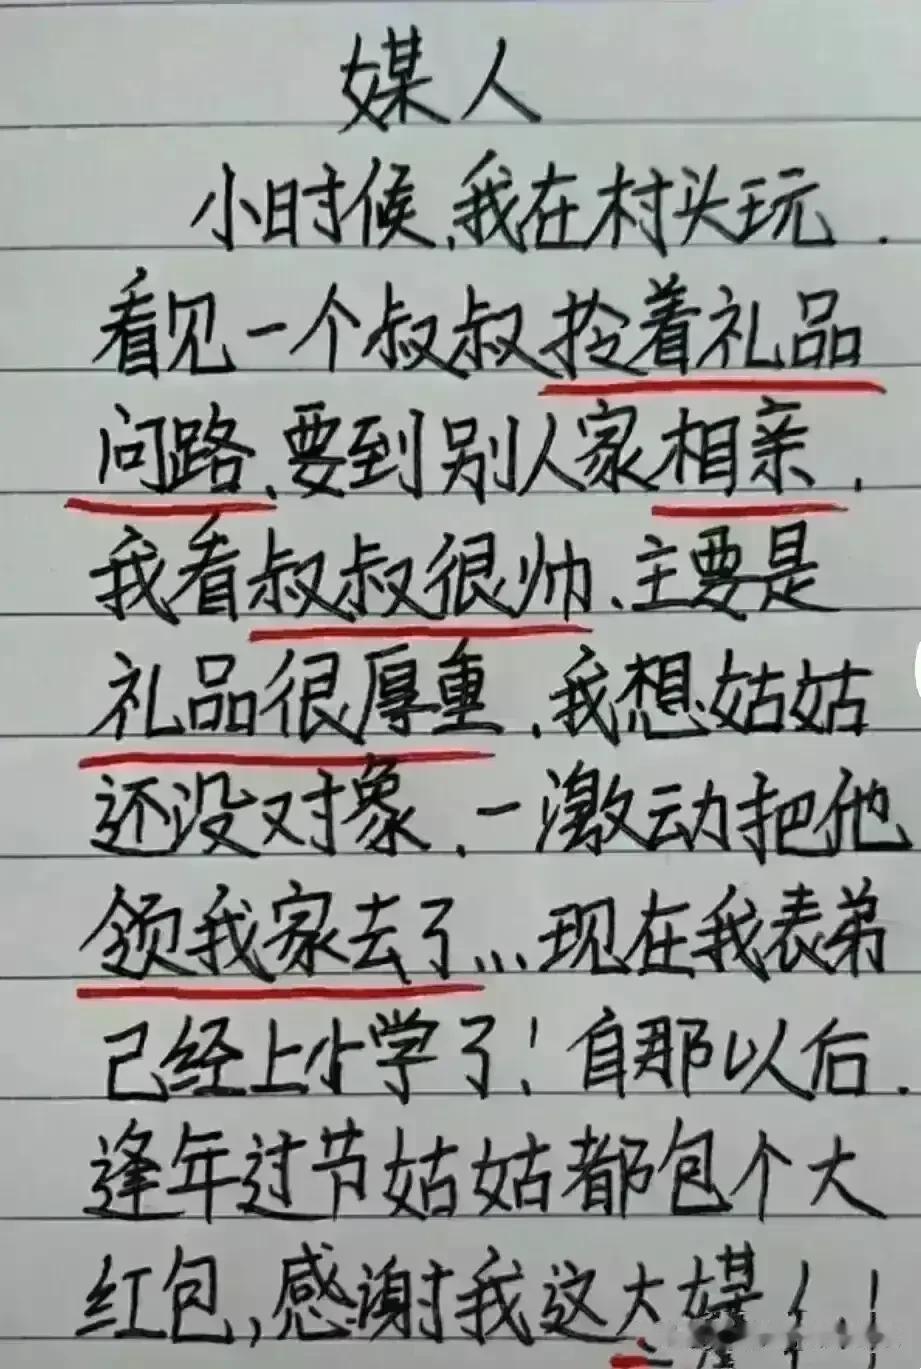 媒人
小时候,我在村头玩.
看见一个叔叔拎着礼品
问路、要到别人家相亲.
我看叔叔很帅、主要是
礼品很厚重、我想姑姑
还没对象、一激动把他
领我家去了...现在我表弟
已经上小学了!自那以后.
逢年过节姑姑都包个大
红包,感谢我这大媒!!